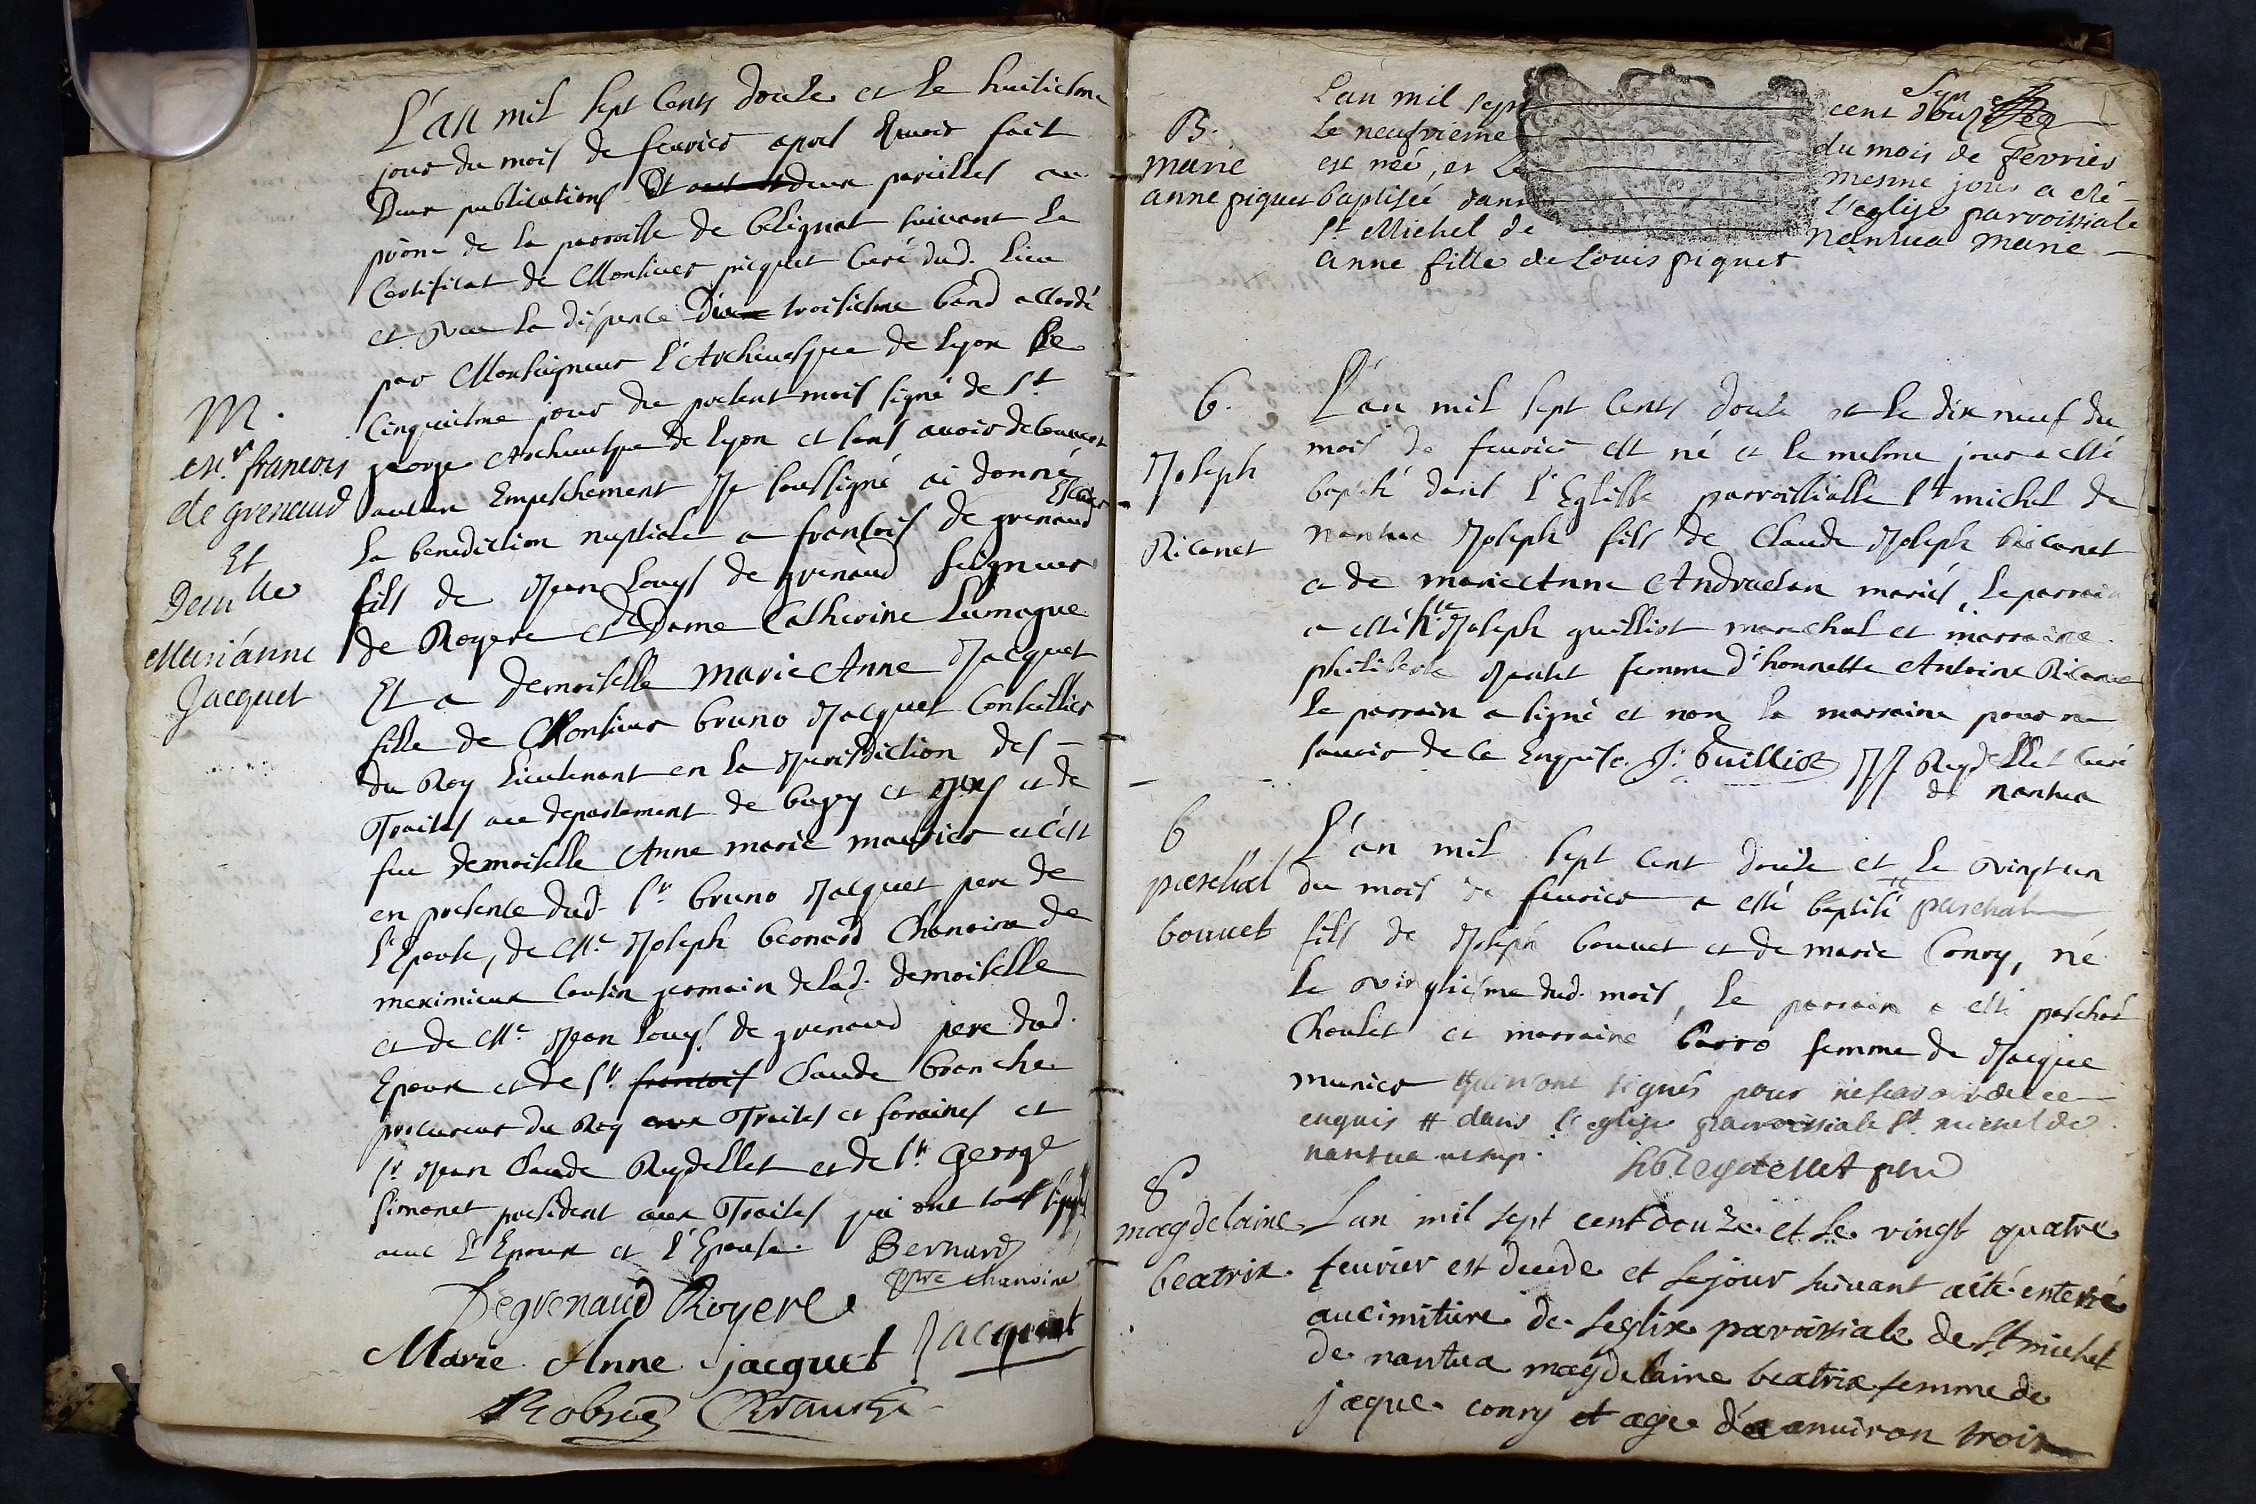 L'an mil sept cents douse et le huitiesme
jour du mois de feurier apres auoir fait
deux publications et deux pareilles au
prône de la parroisse de belignat suiuant le
certificat de Monsieur picquet curé dud. lieu
et veu la dispence du troisiesme band accordé
par Monseigneur l'Archeuesque de lyon le
cinquiesme jour du present mois signé de St
george Archeuesque de lyon et sans auoir decouuert
aucun Empeschement Je soussigné ai donné
la benediction nuptiale a francois de grenaud Escuier
fils de Jean Louys de grenaud seigneur
de Royere et Dame Catherine Lumague
Et a demoiselle marie Anne Jacquet
fille de Monsieur bruno Jacquet Conseillier
du Roy Lieutenant en la Jurisdiction des
Traites au departement de bugey et gex et de
fue demoiselle Anne marie maurier et c'est
en presence dud. Sr bruno Jacquet pere de
l'Epouse, de Mre Joseph bernard Chanoine de
meximieux cousin germain de lad. demoiselle
et de Mre Jean Louys de grenaud pere dud.
Epoux et de Sr francois Claude branche
procureur du Roy aux Traites et foraines et
Sr Jean Claude Reydellet et de Sr George
Simonet president aux Traites qui ont tous signés
auec l'Epoux et l'Epouse. Bernard
ptre chanoine
Degrenaud Royere
Marie Anne jacquet Jacquet
M.
Mr. francois
de grenaud
Et
Demlle
Marianne
Jacquet
L'an mil sept cent douze
le neufvieme du mois de fevrier
est néé, et le mesme jour a eté
baptiséé dans l'eglise parroissiale
St Michel de Nantua Marie
anne fille de Louis piquet
B.
marie
anne piquet
L'an mil sept cents douse et le dix neuf du
mois de feurier est né et le mesme jour a esté
baptisé dans l'Eglisse parroissialle St michel de
nantua Joseph fils de Claude Joseph Ricanet
et de marie Anne Andruetan mariés, le parrain
a esté hte Joseph guilliot marechal et marraine
philiberte femme d'honnette Antoine Ricanet
le parrain a signé et non la marraine pour ne
sauoir de ce Enquise. J: Guilliot JJ Reydellet curé
de nantua
b.
Joseph
Ricanet
L'an mil sept cent douse et le vingt un
du mois de feurier a esté baptisé paschal
fils de Joseph bouuet et de marie Conry, né
le vingtiesme dud. mois, le parrain a esté paschal
Choulet et marraine femme de Jacque
munier qui n'ont signés pour ne scavoir de ce
enquis # dans l'eglise parroissiale St michel de
nantua
b
paschal
bouuet
L'an mil sept cent douze et le vingt quatre
feurier est decede et le jour suiuant a eté enterré
au cimitiere de leglise paroissiale de St michel
de nantua magdelaine beatrix femme de
jaque conry et agé d'enuiron trois
magdelaine
beatrix